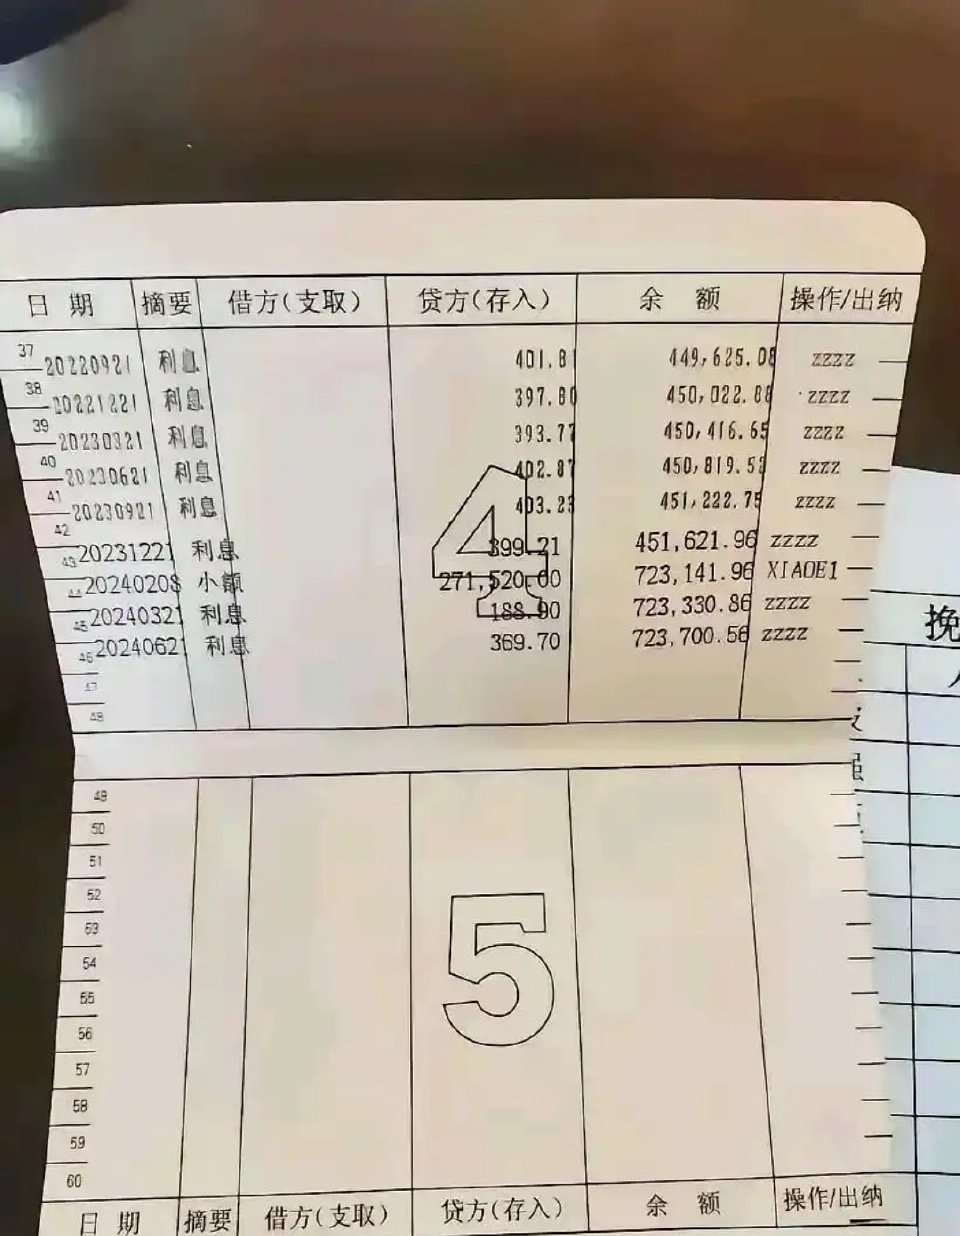 日 期 摘要 借方(支取) 贷方(存入) 余 额 操作/出纳
37 20220921 利息 401.81 449,625.08 ZZZZ
38 20221221 利息 397.80 450,022.88 ZZZZ
39 20230321 利息 393.77 450,416.65 ZZZZ
40 20230621 利息 402.87 450,819.52 ZZZZ
41 20230921 利息 403.23 451,222.75 ZZZZ
42 20231221 利息 399.21 451,621.96 ZZZZ
43 20240208 小额 271,520.00 723,141.96 XIAOE1
44 20240321 利息 188.90 723,330.86 ZZZZ
45 20240621 利息 369.70 723,700.56 ZZZZ
46
47
48
4
49
50
51
52
53
54
55
56
57
58
59
60
5
日 期 摘要 借方(支取) 贷方(存入) 余 额 操作/出纳
挽